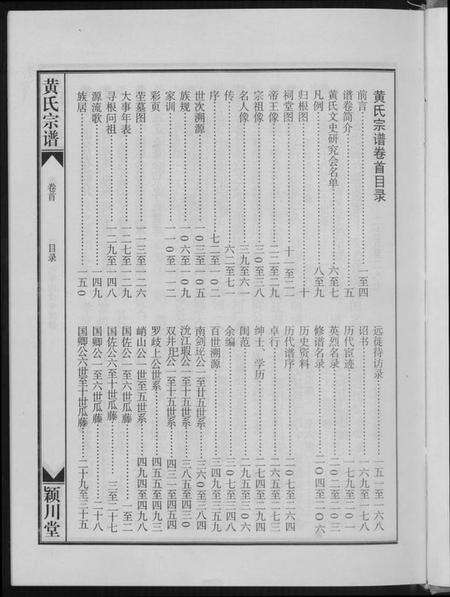 黄氏宗谱卷首目录
前言……一至四
谱卷简介……五
黄氏文史研究会名单……六至七
凡例……八至九
归根图……十
祠堂图……十一至二一
帝王像……二二至二九
宗祖像……三〇至三八
名人像……三九至六一
传……六二至七一
序……七二至一〇二
世次溯源……一〇三至一〇五
族规……一〇六至一〇九
家训……一一〇至一一二
彩页
茔墓图……一一三至一二六
大事年表……一二七至一二九
寻根问祖……一二九至一四八
源流歌……一四九
族居……一五〇
远徒待访录……一五一至一六八
诏书……一六九至一七八
历代宦迹……一七九至二〇一
英烈名录……二〇二至二〇三
修谱名录……二〇四至二〇六
历史资料
历代谱序……二〇七至二六四
卓行……二六五至二七三
绅士、学历……二七四至二九四
阃范……二九五至三〇六
余编……三〇七至三四八
百世溯源……三四九至三五九
南剑琁公一至廿五世系……三六〇至三八四
洸江瑕公一至十五世系……三八五至四三〇
双井玘公一至十五世系……四三一至四五四
罗歧上公世系……四五五至四九三
峭山公一世至五世系……四九四至四九八
国佐公一至六世瓜藤……一至二
国佐公六至十世瓜藤……三至二七
国卿公一至六世瓜藤……二十八
国卿公六世至十世瓜藤……二十九至三十五
黄氏宗谱
卷首
目录
颖川堂